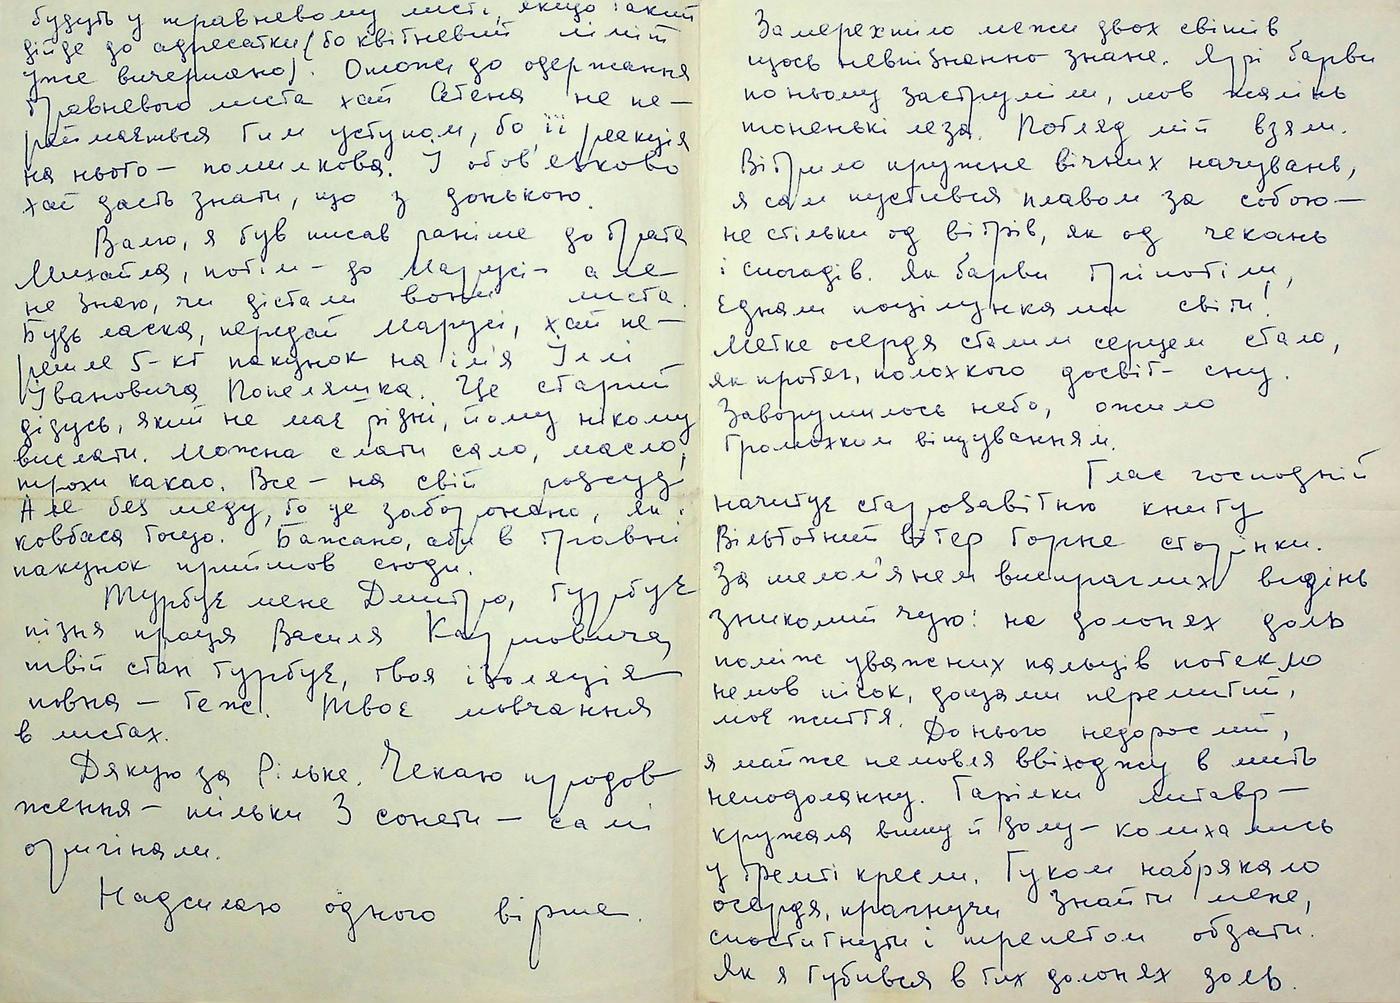 будуть у травневому листі, якщо такий
дійде до адресатки (бо квітневий ліміт
уже вичерпано). Отож до одержання
травневого листа хай Алена не пе-
реймається тим уступом, бо її реакція
на нього — помилкова. І обов'язково
хай дасть знати, що з донькою.
Валю, я був писав раніше до брата
Михайла, потім — до Марусі — але
не знаю, чи дістали вони листа.
Будь ласка, передай Марусі, хай пе-
решле 5-кг пакунок на ім'я Іллі
Івановича Попеляшка. Це старий
дідусь, який не має рідні, йому нікому
вислати. Можна слати сало, масло,
трохи какао. Все — на свій розсуд
Але без меду, бо це заборонено, як і
ковбаса тощо. Бажано, аби в травні
пакунок прийшов сюди.
Турбує мене Дмитро, турбує
пізня праця Василя Каумовича,
твій стан турбує, твоя ізоляція
повна — теж. Твоє мовчання
в листах.
Дякую за Рільке. Чекаю продов
ження — тільки З сонети — самі
оригінали.
Надсилаю одного вірша.
Замерехтіло межи двох світів
щось невпізнанно знане. Ярі барви
по ньому заструміли, мов жалінь
тоненькі леза. Погляд мій взяли.
Вітрило пружне вічних начувань,
я сам пустився плавом за собою —
не стільки од вітрів, як од чекань
і спогадів. Як барви тріпотіли,
єднали поцілунками світи!
Метке осердя сталим серцем стало,
як протяг, полохкого досвіт-сну.
Заворушилось небо, ожило
громохким віщуванням.
Глас господній
начитує старозавітню книгу
Вільготний вітер горне сторінки.
За мелом'янем випраглих видінь
зникомий чую: на долонях доль
поміж уважних пальців потекло
немов пісок, дощами перемитий,
моє життя. До нього недорослий,
я майже немовля ввіходжу в мить
неподоланну. Тарілки литавр —
кружала вишу й долу — колихались
у тремті кресли. Гуком набрякало
осердя, прагнучи знайти мене,
спостигнути і трепетом обдати.
Як я губився в тих долонях доль.